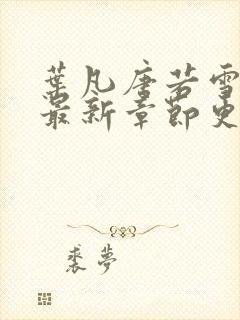 葉凡唐若雪
最新章節史
裘夢